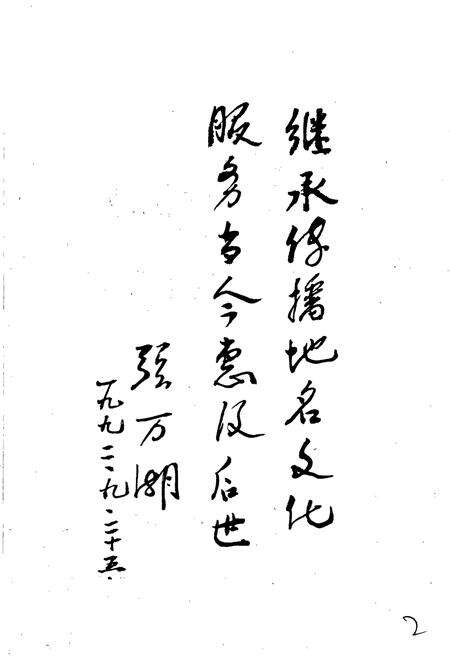 继承传播地名文化
服务当今惠及后世
张万
一九九二·九·二十五·
2